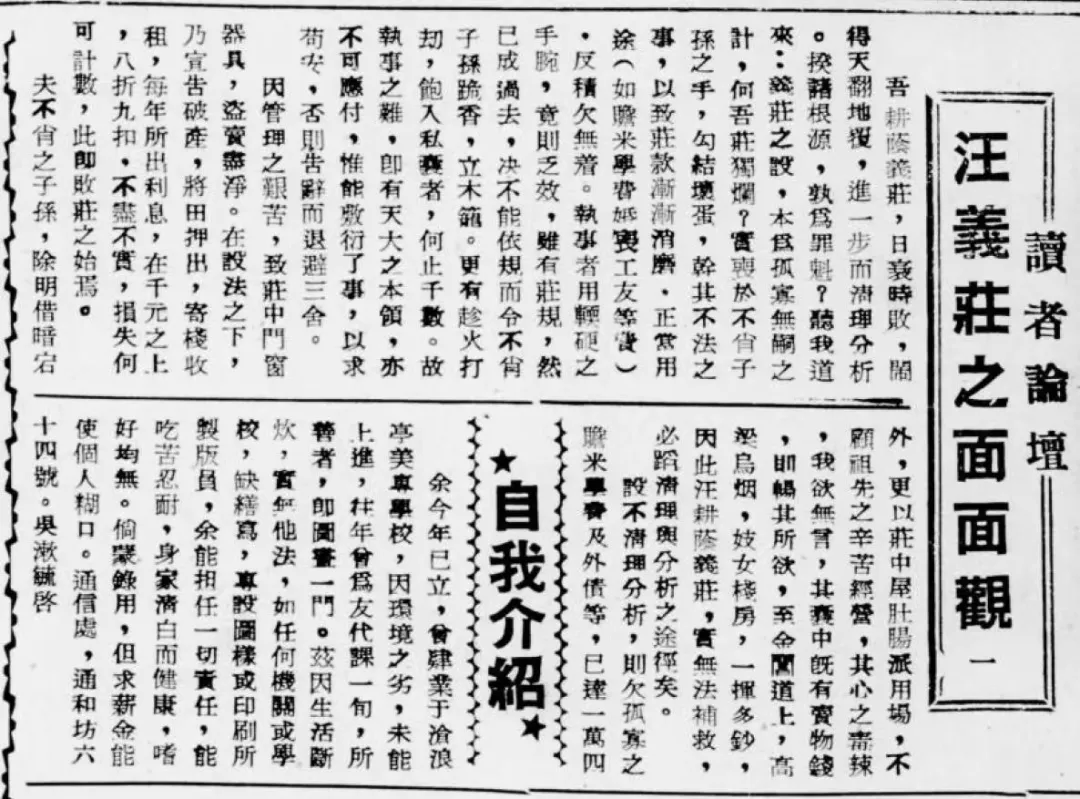 讀者論壇
汪義莊之面面觀 一
吾耕蔭義莊，日衰時敗，鬧
得天翻地覆，進一步而清理分析
。揆諸根源，孰爲罪魁？聽我道
來：義莊之設，本爲孤寡無嗣之
計，何吾莊獨爛？實喪於不肖子
孫之手，勾結壞蛋，幹其不法之
事，以致莊款漸漸消磨．正常用
途（如贍米學費婚喪工友等費）
．反積欠無着。執事者用輭硬之
手腕，竟則乏效，雖有莊規，然
已成過去，决不能依規而令不肖
子孫跪香，立木籠。更有趁火打
刼，飽入私囊者，何止千數。故
執事之難，卽有天大之本領，亦
不可應付，惟能敷衍了事，以求
苟安，否則告辭而退避三舍。
因管理之艱苦，致莊中門窗
器具，盜賣盡淨。在設法之下，
乃宣告破產，將田押出，寄棧收
租，每年所出利息，在千元之上
，八折九扣，不盡不實，損失何
可計數，此卽敗莊之始焉。
夫不肖之子孫，除明借暗宕
外，更以莊中屋肚腸派用場，不
顧祖先之辛苦經營，其心之毒辣
，我欲無言，其囊中旣有賣物錢
，卽暢其所欲，至金閶道上，高
粱烏烟，妓女棧房，一揮多鈔，
因此汪耕蔭義莊，實無法補救，
必蹈清理與分析之途徑矣。
設不清理分析，則欠孤寡之
贍米學費及外債等，已達一萬四
★自我介紹★
余今年已立，曾肄業于滄浪
亭美專學校，因環境之劣，未能
上進，往年曾爲友代課一旬，所
善者，卽圖畫一門。茲因生活斷
炊，實無他法，如任何機關或學
校，缺繕寫，專設圖樣或印刷所
製版員，余能担任一切責任，能
吃苦忍耐，身家清白而健康，嗜
好均無。倘蒙錄用，但求薪金能
使個人糊口。通信處，通和坊六
十四號。吳漱毓啓